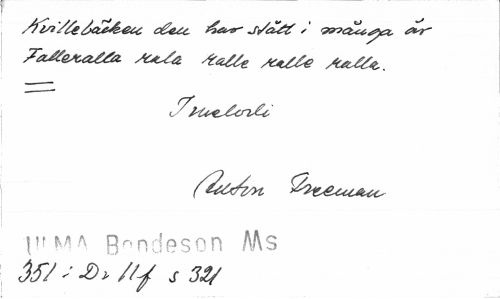 Kvillebäcken den har stått i många år
Falleralla rala ralle ralle ralla.
1 melodi
Anton Freeman
ULMA Bondeson Ms
351 i Dr 11f s 321